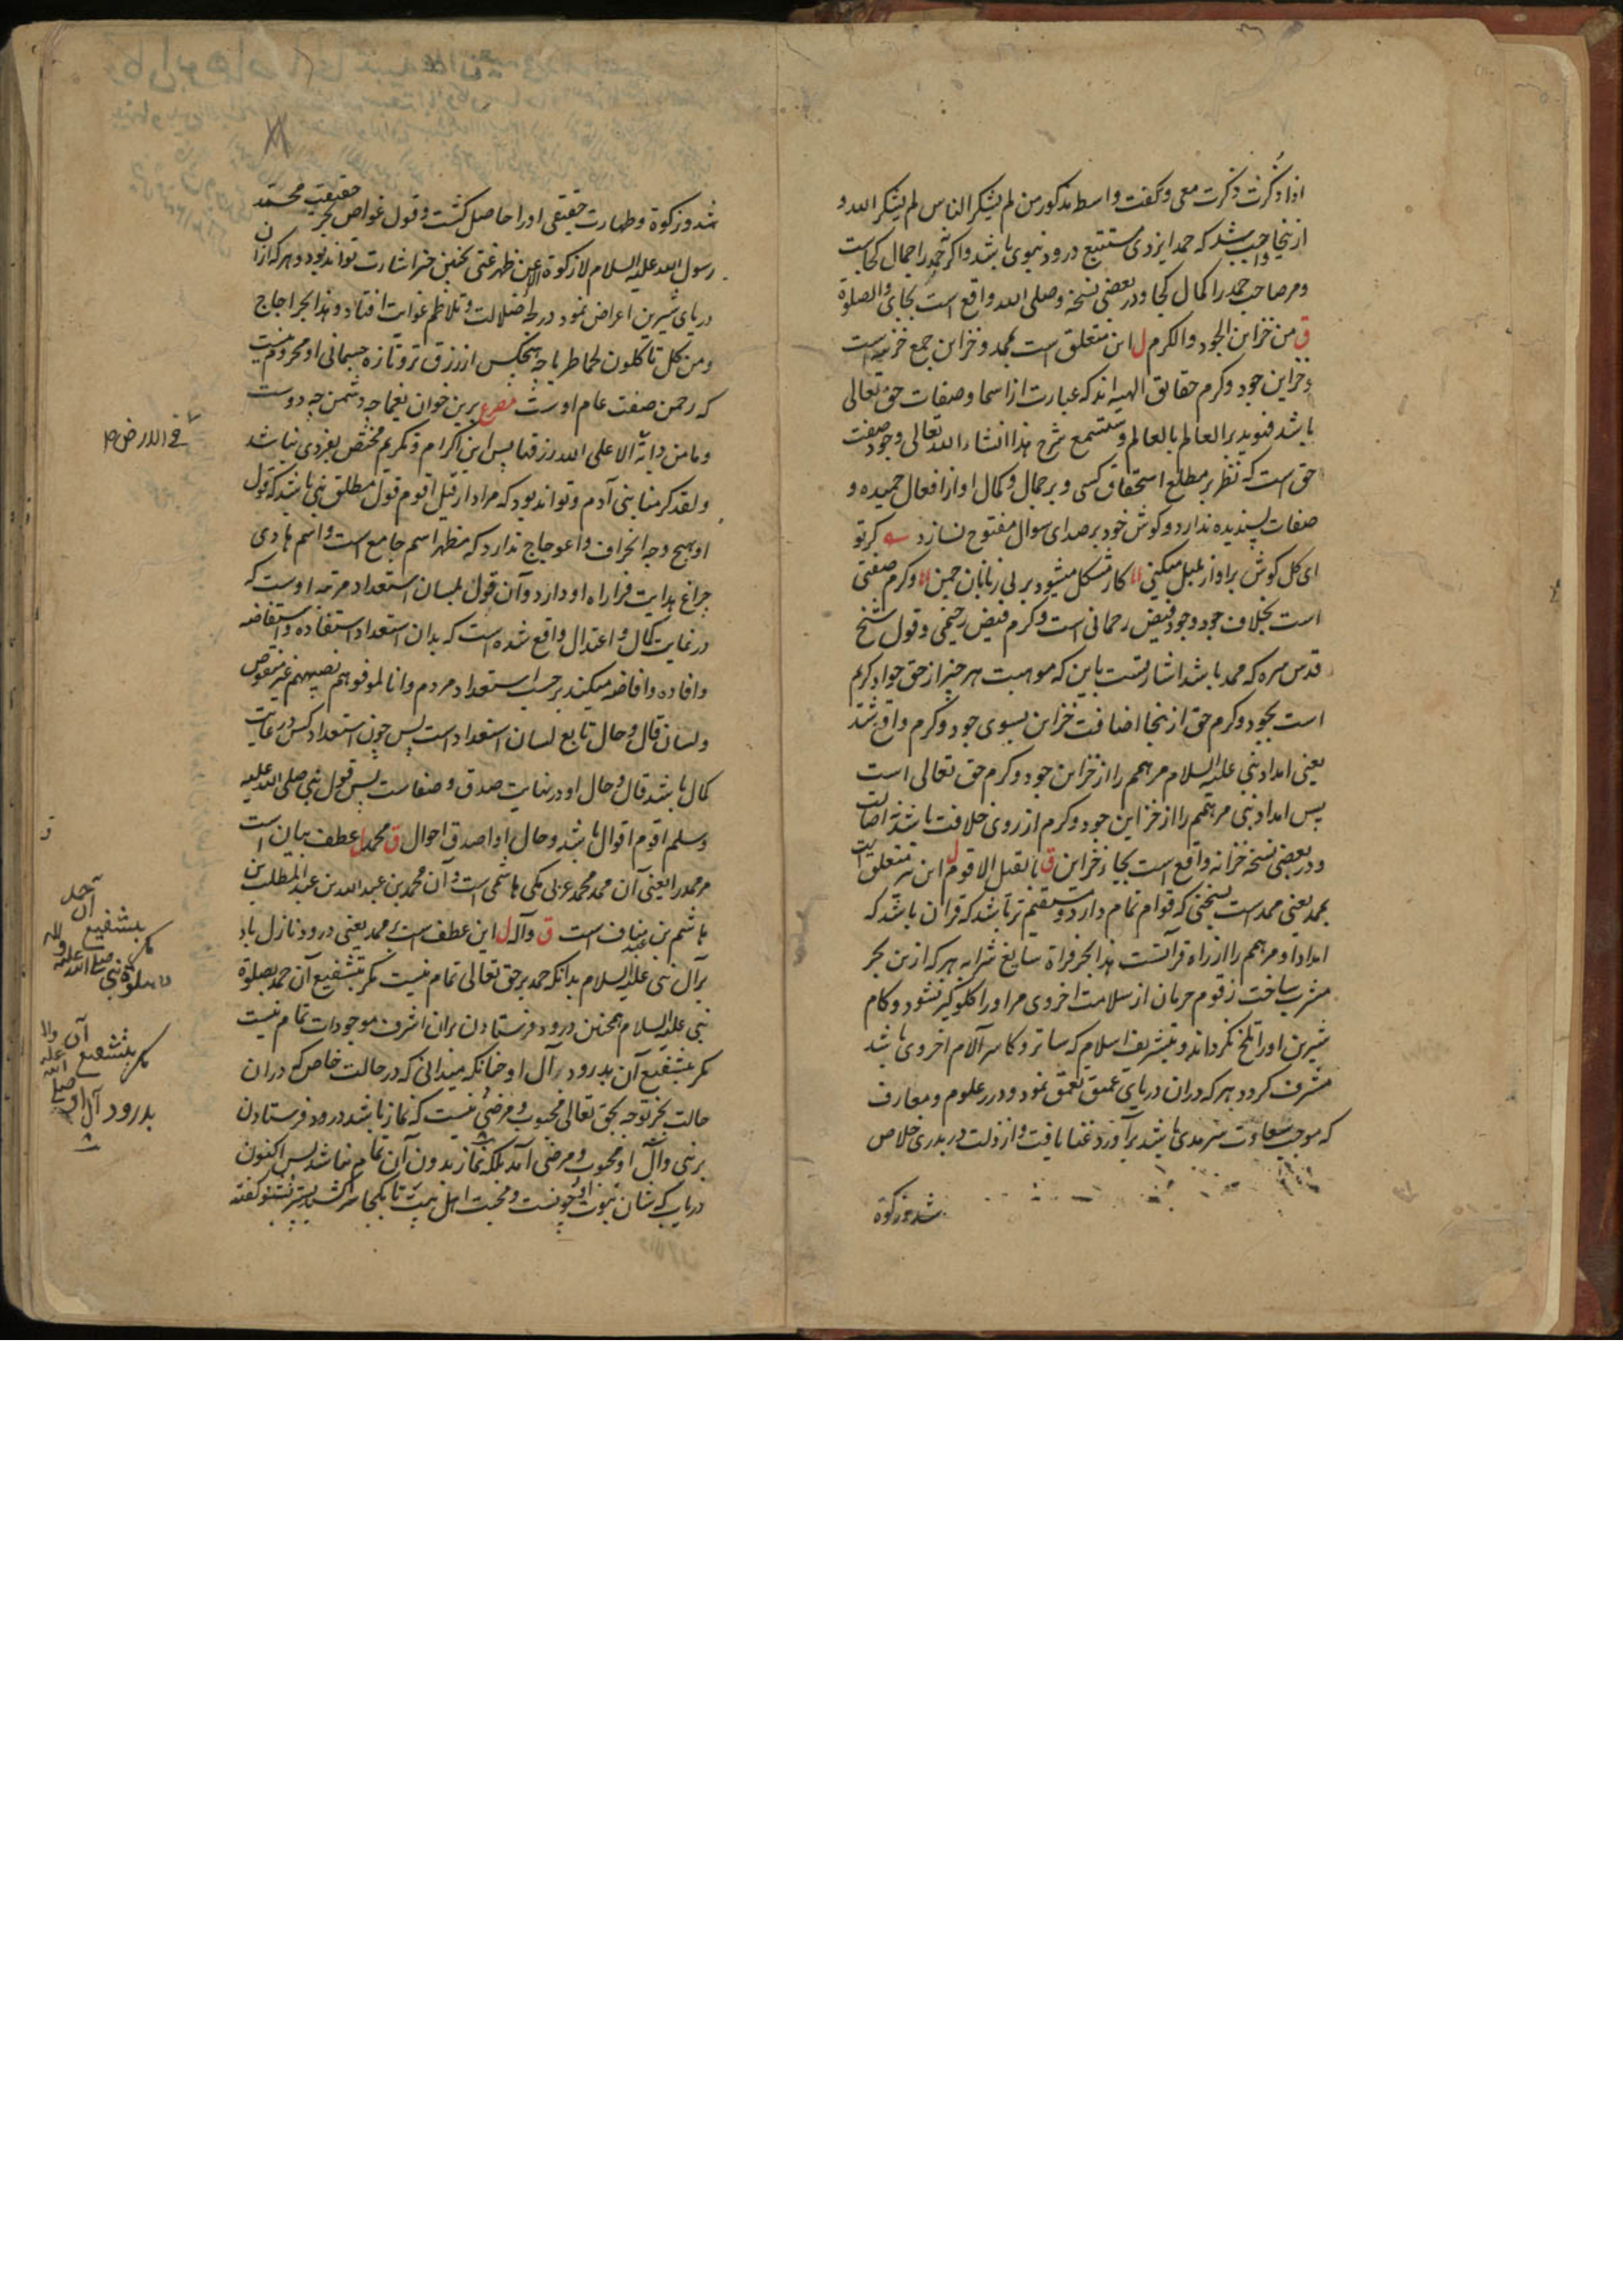 اذا ذکرت ذکرت معی و نکفت واسطه مذکور من لم یشکر الناس لم یشکر الله و
ازینجا واجب شد که حمد ایزدی مستتبع درود نبوی باشد واکر حمد را جمال کجاست
ومر صاحب حمد را کمال کجا ودر بعضی نسخه وصلی الله واقع است بجای والصلوة
ق من خزاین الجود والکرم ل این متعلق است بممد و خزاین جمع خزینه است
وخزاین جود وکرم حقایق الهیه اند که عبارت از اسما وصفات حق تعالی
باشد فیوید بر العالم بالعالم وستسمع شرح هذا انشاء الله تعالی وجود صفت
حق است که نظر بر مطلع استحقاق کسی و بر جمال و کمال او از افعال حمیده و
صفات پسندیده ندارد و کوش خود بر صدای سوال مفتوح نسازد کر تو
ای کل کوش بر اواز بلبل میکینی کار مشکل میشود بر بی زبانان چمن وکرم صفتی
است بخلاف جود وجود فیض رحمانی است وکرم فیض رحیمی وقول شیخ
قدس سره که ممد باشد اشارتست باین که موهبت هر چیز از حق جواد کریم
است بجود وکرم حق ازینجا اضافت خزاین بسوی جود وکرم واقع شد
یعنی امداد نبی علیه السلام مر همم را از خزاین جود وکرم حق تعالی است
پس امداد نبی مر همم را از خزاین جود وکرم از روی خلافت باشد نه اصالت
ودر بعضی نسخه خزانه واقع است بجای خزاین ق بالقیل الاقوم ل این نیز متعلق است
بممد یعنی ممد است بسخنی که قوام تمام دارد و مستقیم تر باشد که قران باشد که
امداد او مر همم را از راه قرآنست هذا بحر فراة سایغ شرابه هر که ازین بحر
مشرب ساخت زقوم حرمان از سلامت اخروی مر او را کلوکیر نشود و کام
شیرین او را تلخ نکرداند و بتشریف اسلام که ساتر و کاسر آلام اخروی باشد
مشرف کردد و هر که دران دریای عمیق تعمق نمود و درر علوم ومعارف
که موجب سعاوت سرمدی باشد بر آورد غنا یافت و از ذلت در بدری خلاص
شد وزکوة
شد وزکوة وطهارت حقیقی او را حاصل کشت وقول غواص بحر حقیقت محمد
رسول الله علیه السلام لا زکوة الا عن ظهر غنی بچنین خبر اشارت تواند بود و هر که ازان
دریای شیرین اعراض نمود در لجه ضلالت و تلاطم غوایت افتاد و هذا بحر اجاج
ومن کل تاکلون لحما طریا چه هیچکس از رزق تر و تازه جسمانی او محروم نیست
که رحمن صفت عام اوست مصرع برین خوان یغما چه دشمن چه دوست
وما من دابة الا علی الله رزقها پس این اکرام و تکریم مختص بفردی نباشد
ولقد کرمنا بنی آدم وتواند بود که مراد از قیل اقوم قول مطلق نبی باشد که قول
او بهیچ وجه انحراف و اعوجاج ندارد که مظهر اسم جامع است و اسم هادی
چراغ هدایت فرا راه او دارد وآن قول بلسان استعداد مرتبه اوست که
در غایت کمال و اعتدال واقع شده است که بدان استعداد استفاده و استفاضه
وافاده وافاضه میکند بر حسب استعداد مردم وانا لموفوهم نصیبهم غیر منقوص
ولسان قال وحال تابع لسان استعداد است پس چون استعداد کس در غایت
کمال باشد قال وحال او در نهایت صدق وصفاست پس قول نبی صلی الله علیه
وسلم اقوم اقوال باشد وحال او اصدق احوال ق محمد ل عطف بیان است
مر ممد را یعنی آن ممد محمد عربی مکی هاشمی است وآن محمد بن عبد الله بن عبد المطلب بن
هاشم بن عبد مناف است ق وآله ل این عطف است بر ممد یعنی درود نازل باد
بر آل نبی علیه السلام بدانکه حمد بر حق تعالی تمام نیست مکر بتشفیع آن حمد بصلوة
نبی علیه السلام همچنین درود فرستادن بران اشرف موجودات تمام نیست
مکر بتشفیع آن بدرود بر آل او چنانکه میدانی که در حالت خاص که دران
حالت بجز توجه بحق تعالی محبوب و مرضی نیست که نماز باشد درود فرستادن
بر نبی وآل او محبوب و مرضی آمد بلکه نماز بدون آن تمام نباشد پس اکنون
دریاب که شان نبوت او چونست و محبت اهل بیت تا بکجا
فی الارض
بتشفیع آن حمد
مکر
بصلوة نبی صلی الله علیه
مکر بتشفیع آن
بدرود آل او